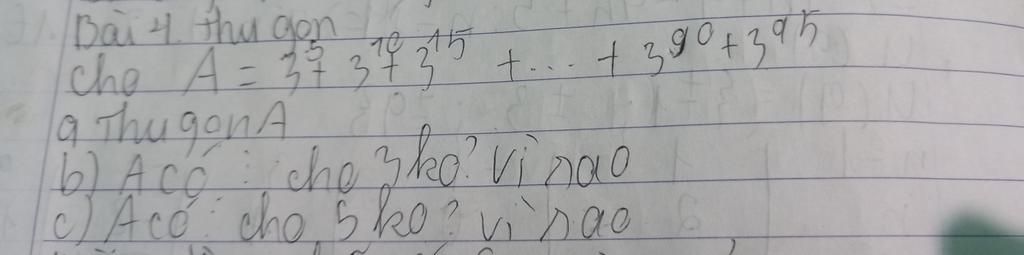 Bài 4. thu gọn
cho A = 3⁵ + 3¹⁰ + 3¹⁵ + ... + 3⁹⁰ + 3⁹⁵
a Thu gọn A
b) A có ⋮ cho 3 ko? vì nao
c) A có ⋮ cho 5 ko? vì nao